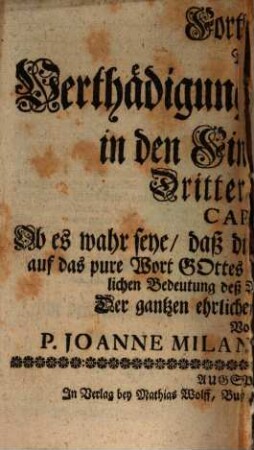 Fort
Verthädigun
in den Fin
Dritter
CAP
Ob es wahr seye/ daß di
auf das pure Wort GOttes
lichen Bedeutung deß
Der gantzen ehrliche
Vo
P. JOANNE MILAN
AUGSP
In Verlag bey Mathias Wolff, Bu